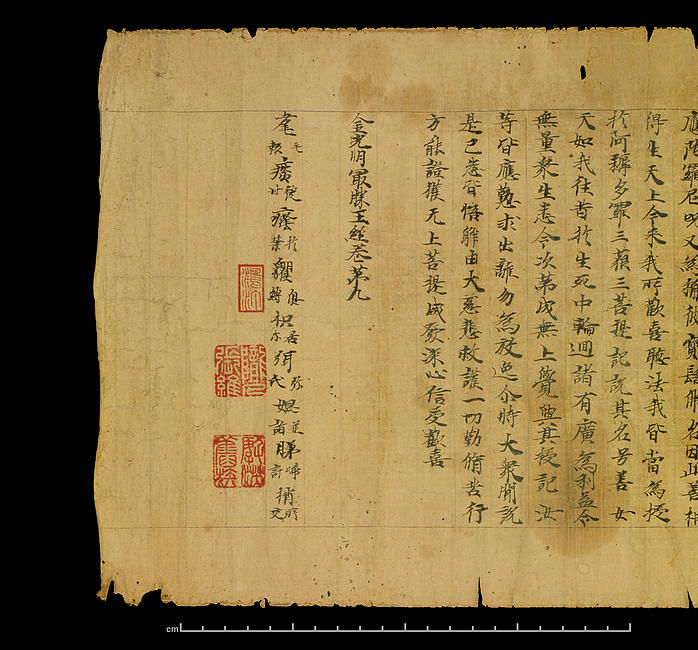 應陀羅尼呪又為稱彼寶髻佛名因此善根
得生天上今來我所歡喜聽法我皆當為授
於阿耨多羅三藐三菩提記說其名号善女
天如我往昔於生死中輪迴諸有廣為利益令
無量衆生悉令次第成無上覺與其授記汝
等皆應懃求出離勿為放逸尒時大衆聞說
是已悉皆悟解由大慈悲救護一切勤脩苦行
方能證獲无上菩提咸發深心信受歡喜
金光明最勝王經卷第九
耄毛報 癊於禁 枳居尔 弭弥氏 睇啼計